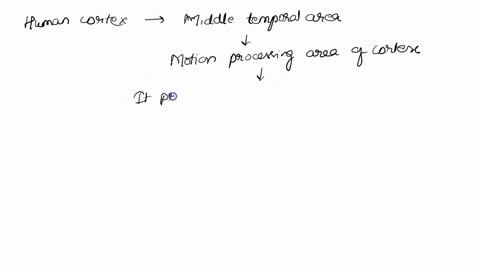 Human cortex → Middle temporal area
↓
Motion processing area of cortex
↓
It pr